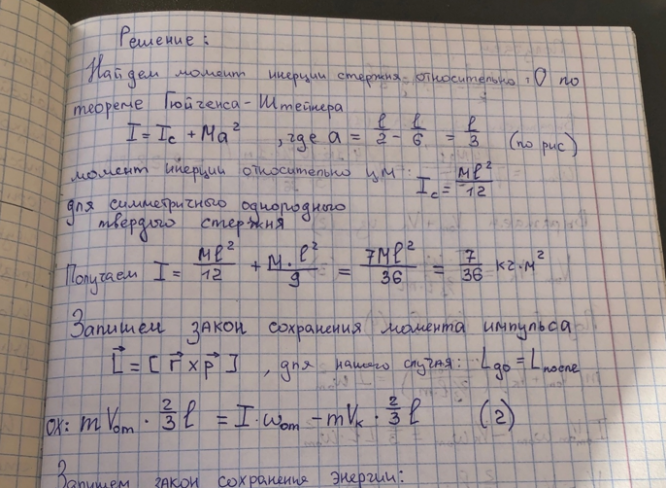 Решение:
Найдем момент инерции стержня относительно O по
теореме Гюйгенса-Штейнера
I = I_c + Ma² , где a = l/2 - l/6 = l/3 (по рис)
момент инерции относительно ЦМ: I_c = Ml²/12
для симметричного однородного
твердого стержня
Получаем I = Ml²/12 + M·l²/9 = 7Ml²/36 = 7/36 кг·м²
Запишем закон сохранения момента импульса
L⃗ = [r⃗ × p⃗] , для нашего случая: L_до = L_после
ox: mV_om · 2/3 l = I·ω_om - mV_k · 2/3 l (2)
Запишем закон сохранения энергии: